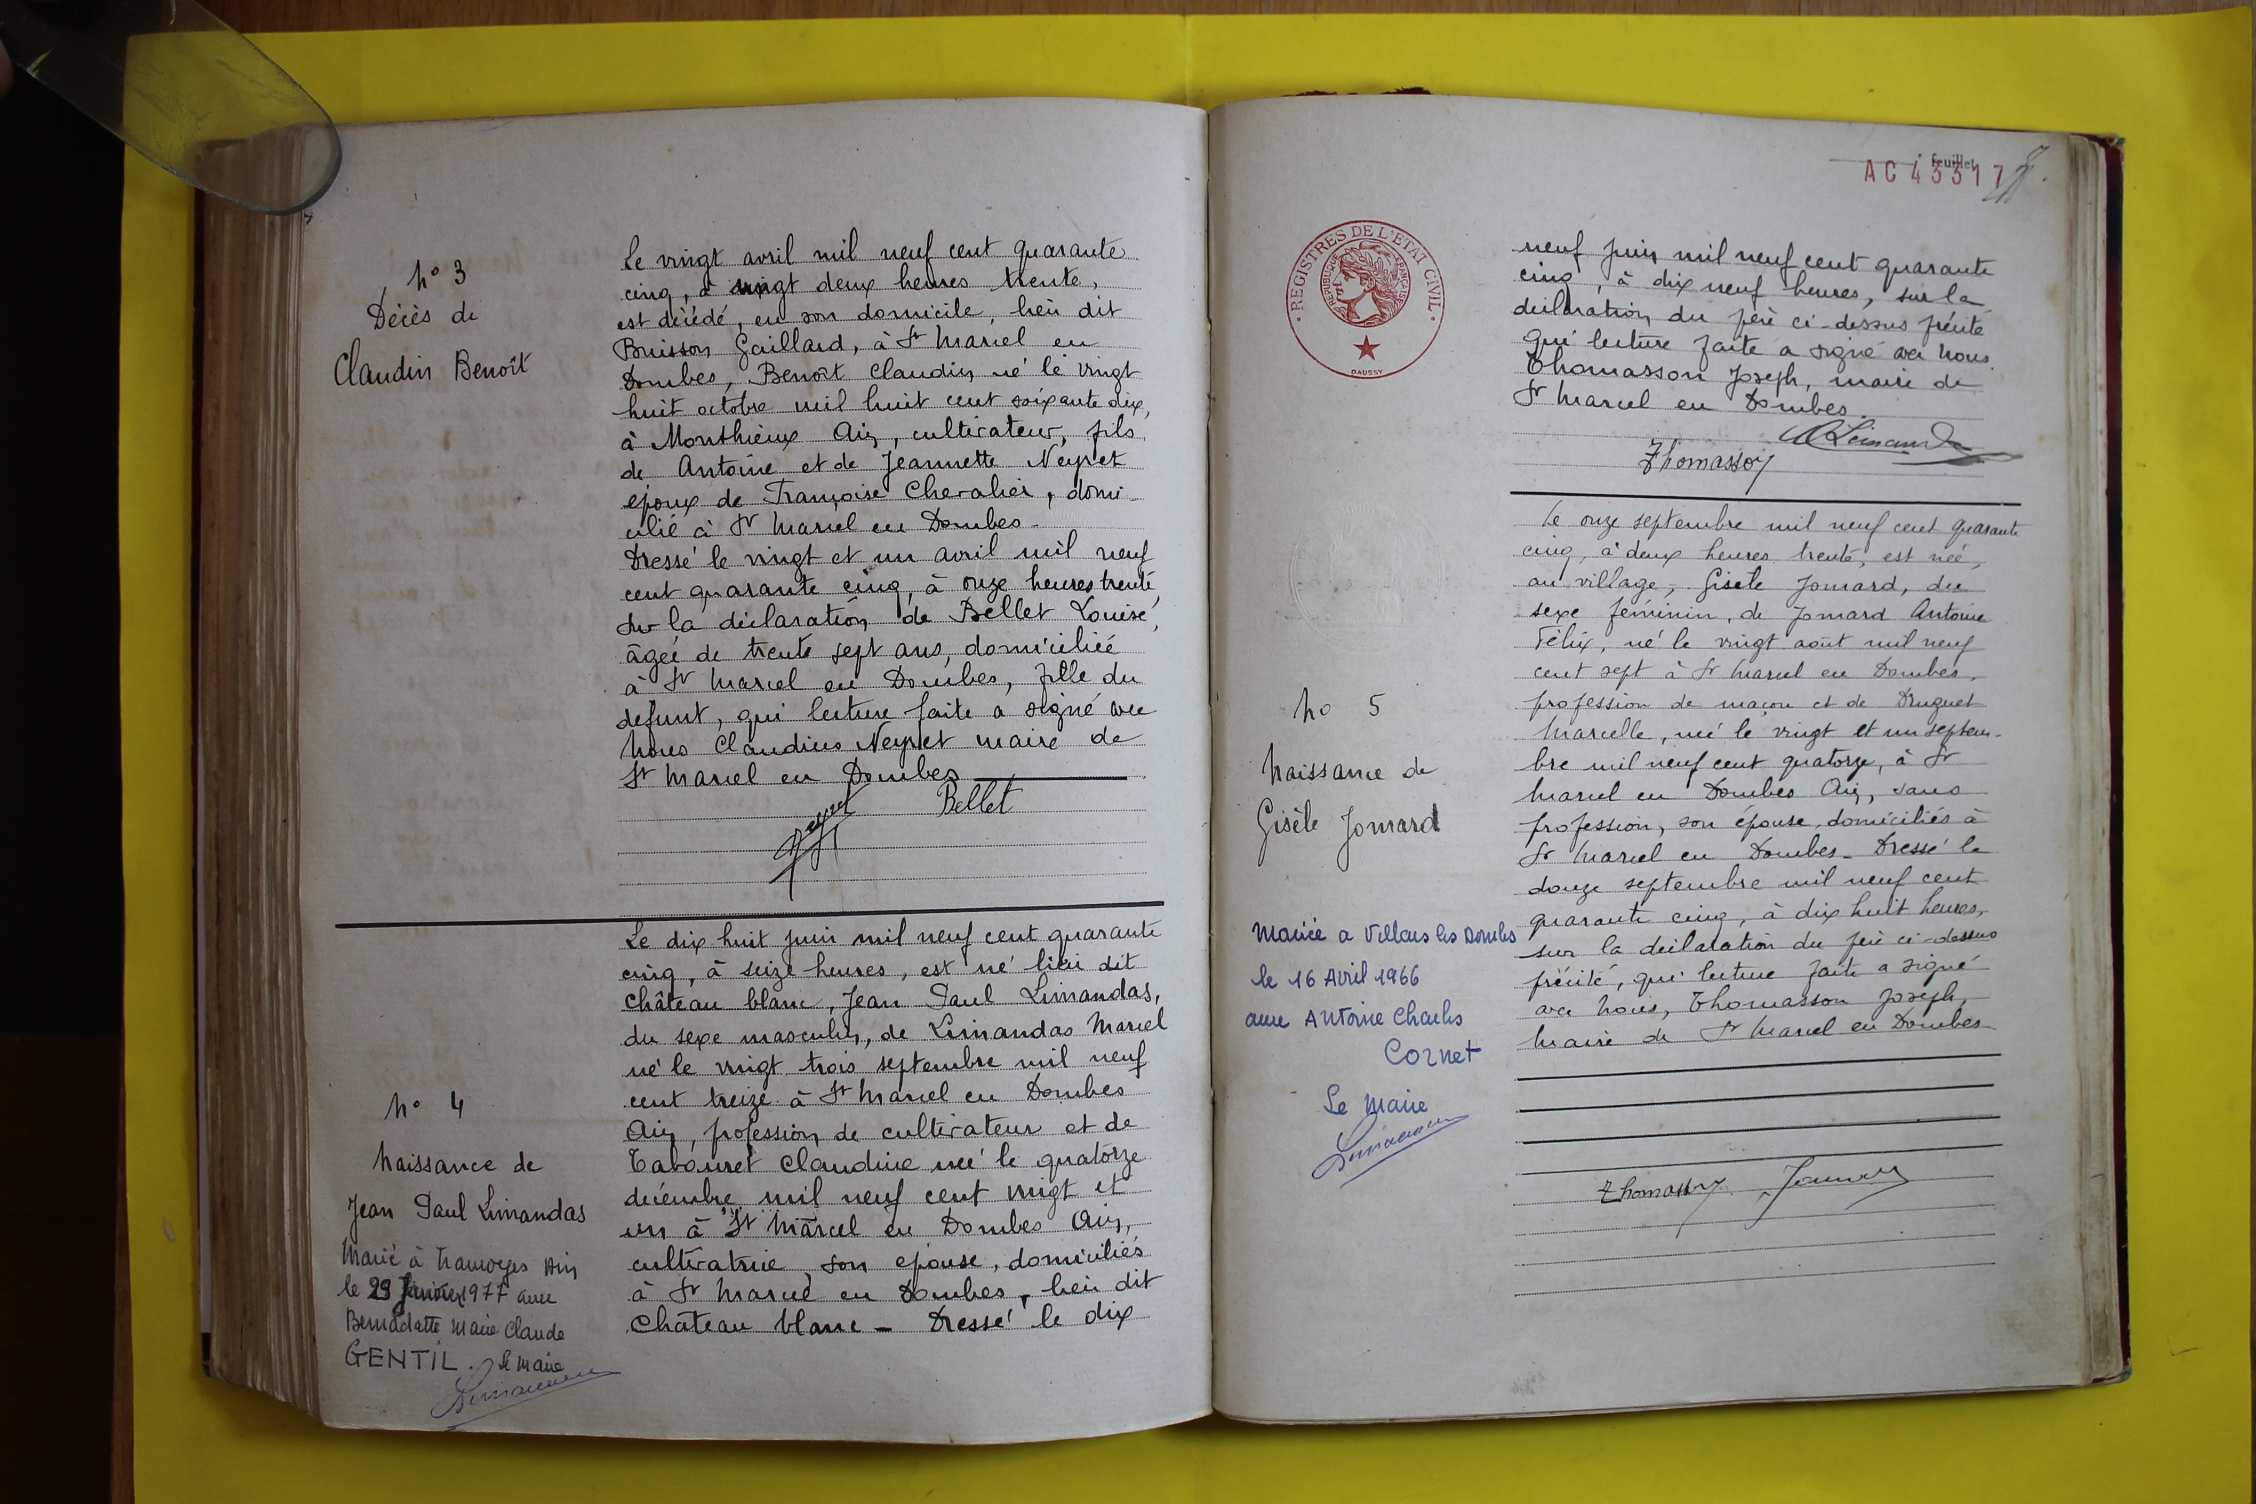 N° 3
Décès de
Claudin Benoît
Le vingt avril mil neuf cent quarante
cinq, à vingt deux heures trente,
est décédé, en son domicile, lieu dit
Buisson Gaillard, à St Marcel en
Dombes, Benoît Claudin, né le vingt
huit octobre mil huit cent soixante dix,
à Monthieux Ain, cultivateur, fils
de Antoine et de Jeannette Neyret
époux de Françoise Chevalier, domi-
cilié à St Marcel en Dombes -
Dressé le vingt et un avril mil neuf
cent quarante cinq, à onze heures trente
sur la déclaration de Bellet Louise,
âgée de trente sept ans, domiciliée
à St Marcel en Dombes, fille du
defunt, qui lecture faite a signé avec
Nous Claudius Neyret maire de
St Marcel en Dombes
Neyret Bellet
N° 4
Naissance de
Jean Paul Limandas
Marié à Tramoyes Ain
le 29 Janvier 1977 avec
Bernadette Marie Claude
GENTIL. le maire
Le dix huit juin mil neuf cent quarante
cinq, à seize heures, est né lieu dit
Château blanc, Jean Paul Limandas,
du sexe masculin, de Limandas Marcel
né le vingt trois septembre mil neuf
cent treize à St Marcel en Dombes
Ain, profession de cultivateur et de
Tabouret Claudine née le quatorze
décembre mil neuf cent vingt et
un à St Marcel en Dombes Ain,
cultivatrice son épouse, domiciliés
à St Marcel en Dombes, lieu dit
Château blanc - Dressé le dix
feuillet
AC 43317
REGISTRES DE L'ETAT CIVIL
REPUBLIQUE FRANÇAISE
DAUSSY
neuf juin mil neuf cent quarante
cinq, à dix neuf heures, sur la
déclaration du père ci-dessus précité
qui lecture faite a signé avec Nous
Thomasson Joseph, maire de
St Marcel en Dombes.
Limandas
Thomasson
N° 5
Naissance de
Gisèle Jomard
Mariée a Villars les Dombes
le 16 Avril 1966
avec Antoine Charles
Cornet
Le Maire
Le onze septembre mil neuf cent quarante
cinq, à deux heures trente, est née,
au village, Gisèle Jomard, du
sexe féminin, de Jomard Antoine
Félix, né le vingt août mil neuf
cent sept à St Marcel en Dombes,
profession de maçon et de Druguet
Marcelle, née le vingt et un septem-
bre mil neuf cent quatorze, à St
Marcel en Dombes Ain, sans
profession, son épouse, domiciliés à
St Marcel en Dombes - Dressé le
douze septembre mil neuf cent
quarante cinq, à dix huit heures,
sur la déclaration du père ci-dessus
précité, qui lecture faite a signé
avec Nous, Thomasson Joseph,
Maire de St Marcel en Dombes
Thomasson Jomard